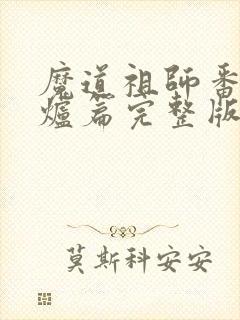 魔道祖師番
爐篇完整版
莫斯科安安